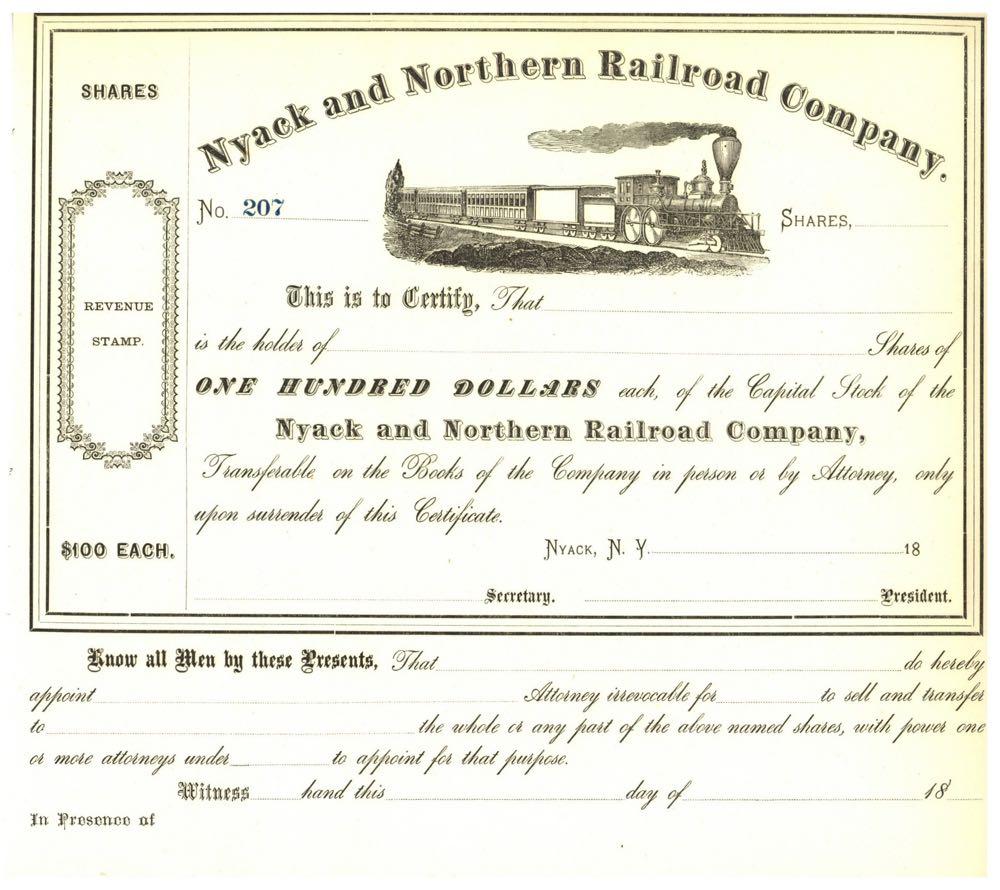 Nyack and Northern Railroad Company.
SHARES
No. 207
SHARES,
REVENUE
STAMP.
This is to Certify, That
is the holder of Shares of
ONE HUNDRED DOLLARS each, of the Capital Stock of the
Nyack and Northern Railroad Company,
Transferable on the Books of the Company in person or by Attorney, only
upon surrender of this Certificate.
$100 EACH.
NYACK, N. Y. 18
Secretary. President.
Know all Men by these Presents, That do hereby
appoint Attorney irrevocable for to sell and transfer
to the whole or any part of the above named shares, with power one
or more attorneys under to appoint for that purpose.
Witness hand this day of 18
In Presence of